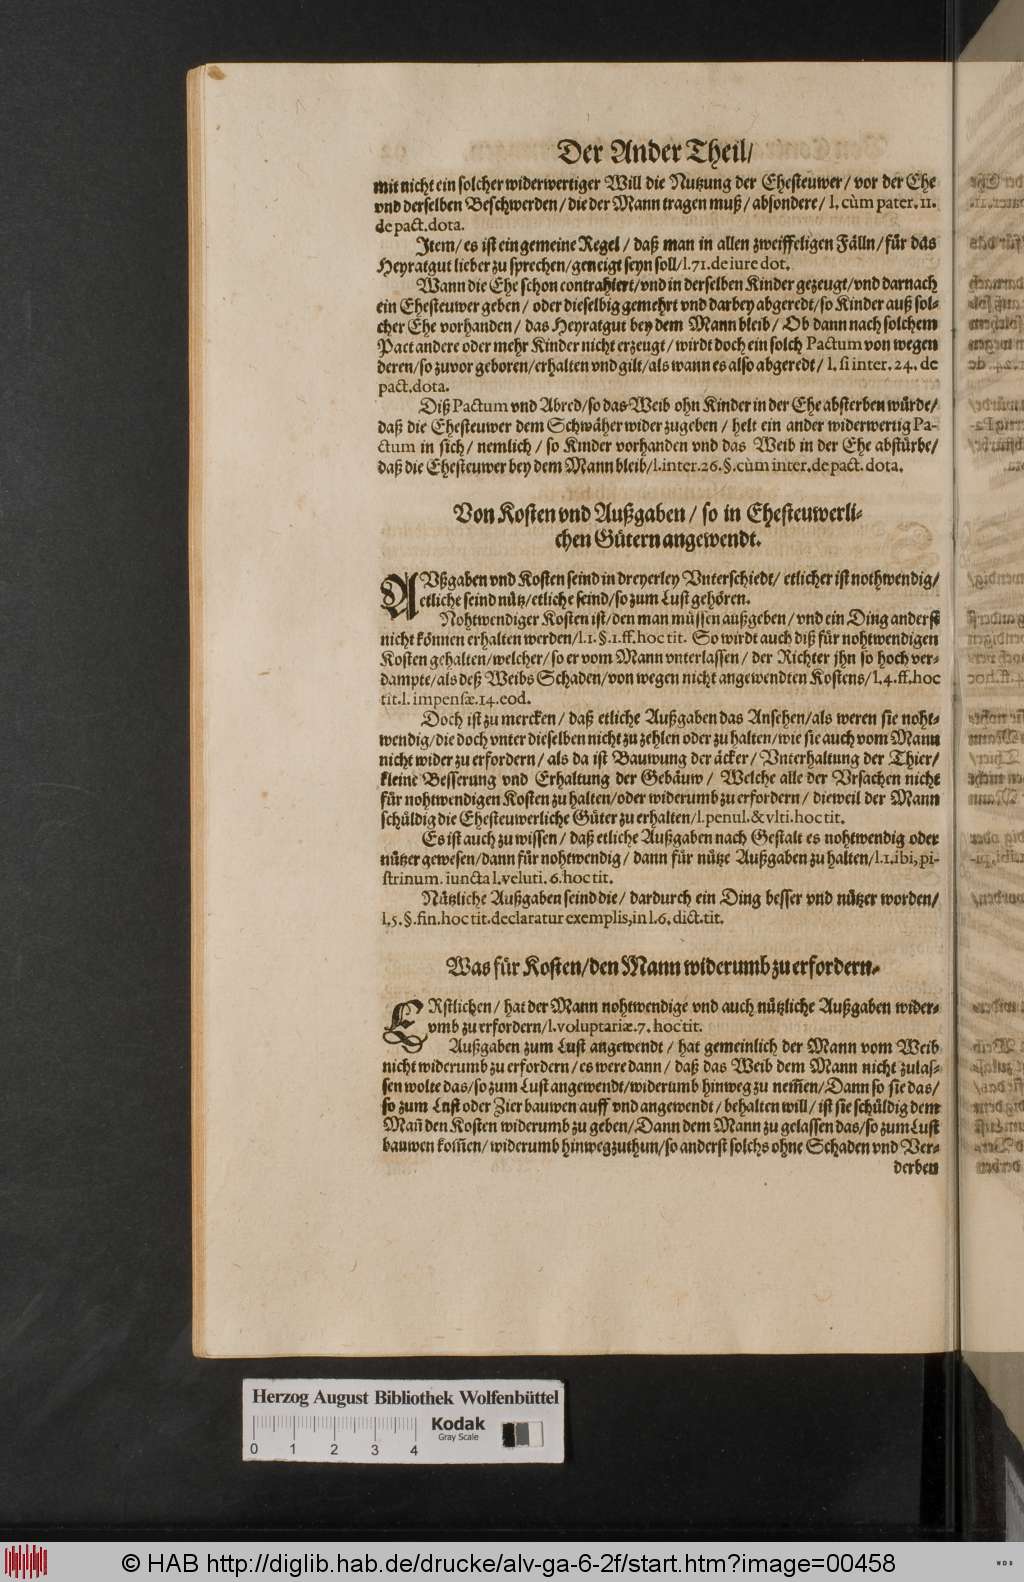 Der Ander Theil/
mit nicht ein solcher widerwertiger Will die Nutzung der Ehesteuwer / vor der Ehe
vnd derselben Beschwerden / die der Mann tragen muß / absondere / l. cùm pater. 11.
de pact. dota.
Jtem / es ist ein gemeine Regel / daß man in allen zweiffeligen Fälln / für das
Heyratgut lieber zu sprechen / geneigt seyn soll / l. 71. de iure dot.
Wann die Ehe schon contrahiert / vnd in derselben Kinder gezeugt / vnd darnach
ein Ehesteuwer geben / oder dieselbig gemehrt vnd darbey abgeredt / so Kinder auß sol-
cher Ehe vorhanden / das Heyratgut bey dem Mann bleib / Ob dann nach solchem
Pact andere oder mehr Kinder nicht erzeugt / wirdt doch ein solch Pactum von wegen
deren / so zuvor geboren / erhalten vnd gilt / als wann es also abgeredt / l. si inter. 24. de
pact. dota.
Diß Pactum vnd Abred / so das Weib ohn Kinder in der Ehe absterben würde /
daß die Ehesteuwer dem Schwäher wider zugeben / helt ein ander widerwertig Pa-
ctum in sich / nemlich / so Kinder vorhanden vnd das Weib in der Ehe abstürbe /
daß die Ehesteuwer bey dem Mann bleib / l. inter. 26. §. cùm inter. de pact. dota.
Von Kosten vnd Außgaben / so in Ehesteuwerli-
chen Gütern angewendt.
AVßgaben vnd Kosten seind in dreyerley Vnterschiedt / etlicher ist nothwendig /
etliche seind nütz / etliche seind / so zum Lust gehören.
Nohtwendiger Kosten ist / den man müssen außgeben / vnd ein Ding anderst
nicht können erhalten werden / l. 1. §. 1. ff. hoc tit. So wirdt auch diß für nohtwendigen
Kosten gehalten / welcher / so er vom Mann vnterlassen / der Richter jhn so hoch ver-
dampte / als deß Weibs Schaden / von wegen nicht angewendten Kostens / l. 4. ff. hoc
tit. l. impensæ. 14. eod.
Doch ist zu mercken / daß etliche Außgaben das Ansehen / als weren sie noht-
wendig / die doch vnter dieselben nicht zu zehlen oder zu halten / wie sie auch vom Mann
nicht wider zu erfordern / als da ist Bauwung der äcker / Vnterhaltung der Thier /
kleine Besserung vnd Erhaltung der Gebäuw / Welche alle der Vrsachen nicht
für nohtwendigen Kosten zu halten / oder widerumb zu erfordern / dieweil der Mann
schüldig die Ehesteuwerliche Güter zu erhalten / l. penul. & vlti. hoc tit.
Es ist auch zu wissen / daß etliche Außgaben nach Gestalt es nohtwendig oder
nützer gewesen / dann für nohtwendig / dann für nütze Außgaben zu halten / l. 1. ibi, pi-
strinum. iuncta l. veluti. 6. hoc tit.
Nützliche Außgaben seind die / dardurch ein Ding besser vnd nützer worden /
l. 5. §. fin. hoc tit. declaratur exemplis, in l. 6. dict. tit.
Was für Kosten / den Mann widerumb zu erfordern.
ERstlichen / hat der Mann nohtwendige vnd auch nützliche Außgaben wider-
vmb zu erfordern / l. voluptariæ. 7. hoc tit.
Außgaben zum Lust angewendt / hat gemeinlich der Mann vom Weib
nicht widerumb zu erfordern / es were dann / daß das Weib dem Mann nicht zulas-
sen wolte das / so zum Lust angewendt / widerumb hinweg zu nem̃en / Dann so sie das /
so zum Lust oder Zier bauwen auff vnd angewendt / behalten will / ist sie schüldig dem
Mañ den Kosten widerumb zu geben / Dann dem Mann zu gelassen das / so zum Lust
bauwen kom̃en / widerumb hinweg zuthun / so anderst solchs ohne Schaden vnd Ver-
derben
Herzog August Bibliothek Wolfenbüttel
Kodak
Gray Scale
0 1 2 3 4
© HAB http://diglib.hab.de/drucke/alv-ga-6-2f/start.htm?image=00458